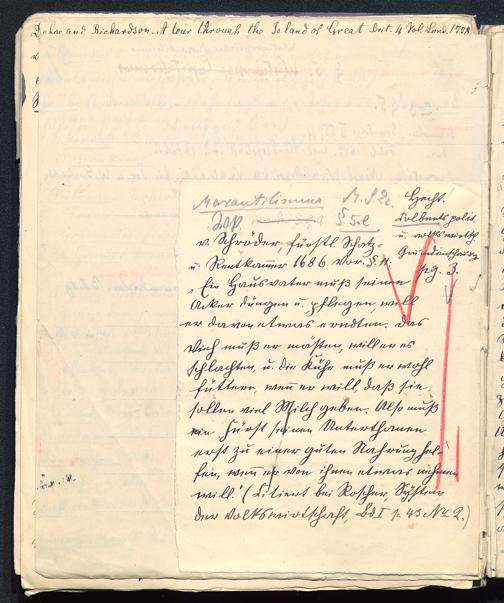 Defoe and Richardson. A tour through the Island of Great Brit. 4 Vol. Lond. 1778
Mercantilismus § 2c.
§ 5.e
Hecht.
Colberts polit.
u. volkswirtsch.
Grundanschauung
pg. 3.
v. Schröder, fürstl. Schatz-
u. Rentkammer 1686. Vor. § 11.
„Ein Hausvater muß seinen
Acker düngen u. pflegen, will
er davon etwas erndten. Das
Vieh muß er mästen, will er es
schlachten, u. die Kühe muß er wohl
füttern, wenn er will, daß sie
sollen viel Milch geben. Also muß
ein Fürst seinen Unterthanen
erst zu einer guten Nahrung hel-
fen, wenn er von ihnen etwas nehmen
will." (Citiert bei Roscher, System
der Volkswirtschaft, Bd I p. 43 No 2.)